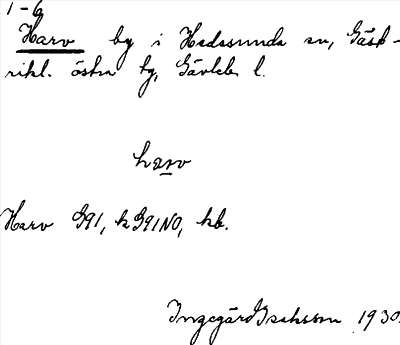 1-6
Harv by i Hedesunda sn, Gäst-
rikl. östra tg, Gävleb. l.
harv
Harv G91, k G91NO, kb.
Ingegärd Isaksson 1930.